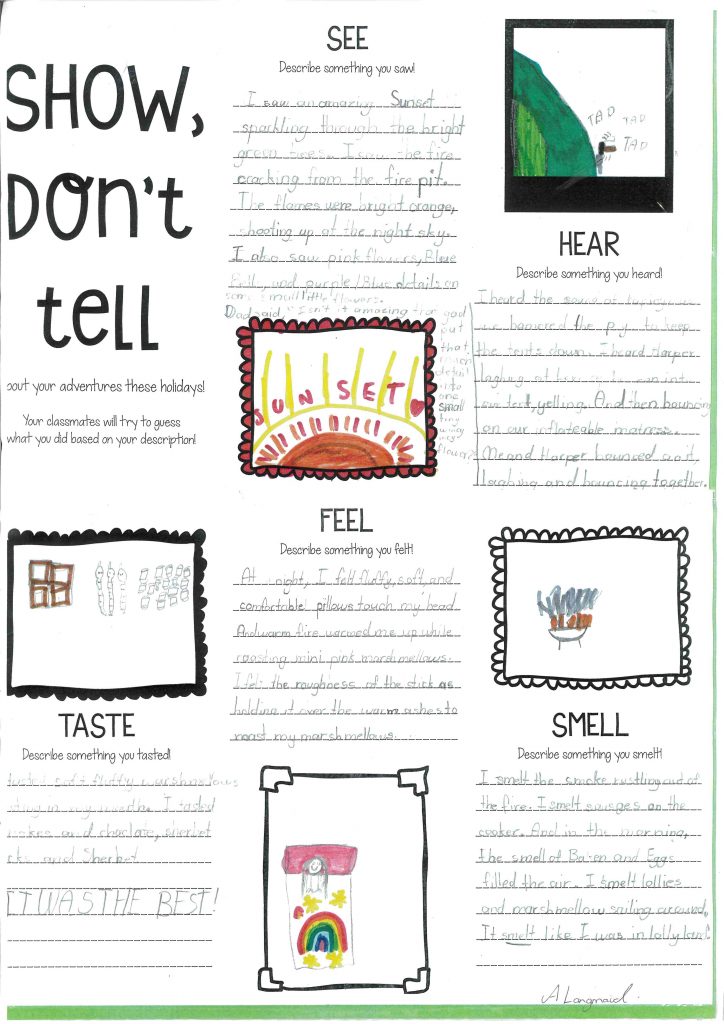 SHOW,
DON't
tell
out your adventures these holidays!
Your classmates will try to guess
what you did based on your description!
SEE
Describe something you saw!
I saw an amazing Sunset
sparkling through the bright
green trees. I saw the fire
cracking from the fire pit.
The flames were bright orange,
shooting up at the night sky.
I also saw pink flowers, Blue
and purple/Blue details on
some small little flowers.
Dad said, "Isn't it amazing that god
put
that
much
detail
into
one
small
tiny
flower?
SUNSET
TAD
TAD
TAD
HEAR
Describe something you heard!
I heard the sound of
we hamored the peg to keep
the tents down. I heard Harper
laghing at
our tent, yelling. And then bouncing
on our inflateable matress.
Me and Harper bounced on it,
laughing and bouncing together.
FEEL
Describe something you felt!
At night, I felt fluffy, soft and
comfortable pillows touch my head.
And warm fire warmed me up while
roasting mini pink marshmellows.
I felt the roughness of the stick as
holding it over the warm ashes to
roast my marshmellows.
TASTE
Describe something you tasted!
tasted soft fluffy marshmallows
in my mouth. I tasted
and choclate, sherbet
and Sherbet
IT WAS THE BEST!
SMELL
Describe something you smelt!
I smelt the smoke rustling out of
the fire. I smelt sausges on the
cooker. And in the morning,
the smell of Bacon and Eggs
filled the air. I smelt lollies
and marshmellow sailing around.
It smelt like I was in lolly land.
A Langmaid